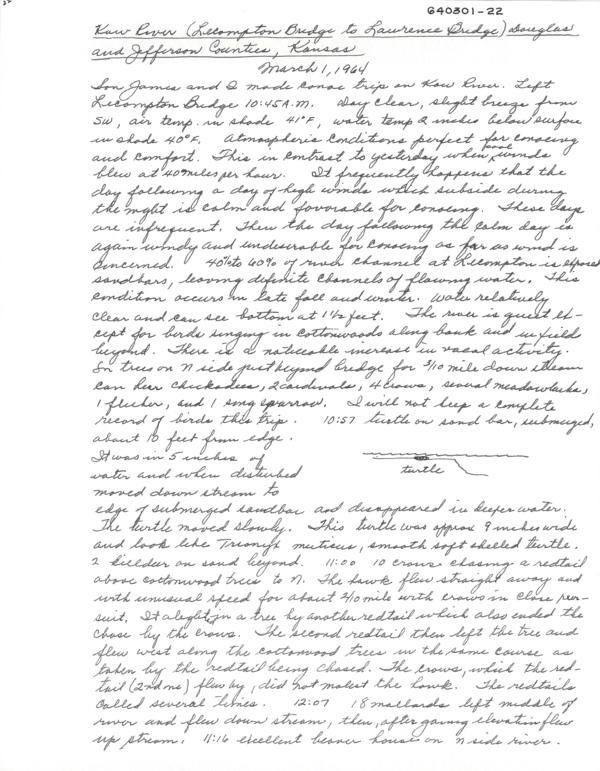 640301-22
Kaw River (Lecompton Bridge to Lawrence Bridge) Douglas
and Jefferson Counties, Kansas
March 1, 1964
Son James and I made canoe trip on Kaw River. Left
Lecompton Bridge 10:45 A.M. Day clear, slight breeze from
SW, air temp. in shade 41°F, water temp 2 inches below surface
in shade 40°F. Atmospheric conditions perfect for canoeing
and comfort. This in contrast to yesterday when winds
blew at 40 miles per hour. It frequently happens that the
day following a day of high winds which subside during
the night is calm and favorable for canoeing. These days
are infrequent. Then the day following the calm day is
again windy and undesirable for canoeing as far as wind is
concerned. 40% to 60% of river channel at Lecompton is exposed
sandbars, leaving definite channels of flowing water. This
condition occurs in late fall and winter. Water relatively
clear and can see bottom at 1 1/2 feet. The river is quiet ex-
cept for birds singing in cottonwoods along bank and in field
beyond. There is a noticeable increase in vocal activity.
In trees on N side just beyond bridge for 3/10 mile down stream
can hear chickadees, 2 cardinals, 4 crows, several meadowlarks,
1 flicker, and 1 song sparrow. I will not keep a complete
record of birds this trip. 10:57 turtle on sand bar, submerged,
about 10 feet from edge.
It was in 5 inches of
water and when disturbed
turtle
moved down stream to
edge of submerged sandbar and disappeared in deeper water.
The turtle moved slowly. This turtle was approx 9 inches wide
and look like Trionyx muticus, smooth soft shelled turtle.
2 killdeer on sand beyond. 11:00 10 crows chasing a redtail
above cottonwood trees to N. The hawk flew straight away and
with unusual speed for about 2/10 mile with crows in close per-
suit. It alighted in a tree by another redtail which also ended the
chase by the crows. The second redtail then left the tree and
flew west along the cottonwood trees in the same course as
taken by the redtail being chased. The crows, which the red-
tail (2nd one) flew by, did not molest the hawk. The redtails
called several times. 12:07 18 mallards left middle of
river and flew down stream, then, after gaining elevation flew
up stream. 11:16 excellent beaver house on N side river.